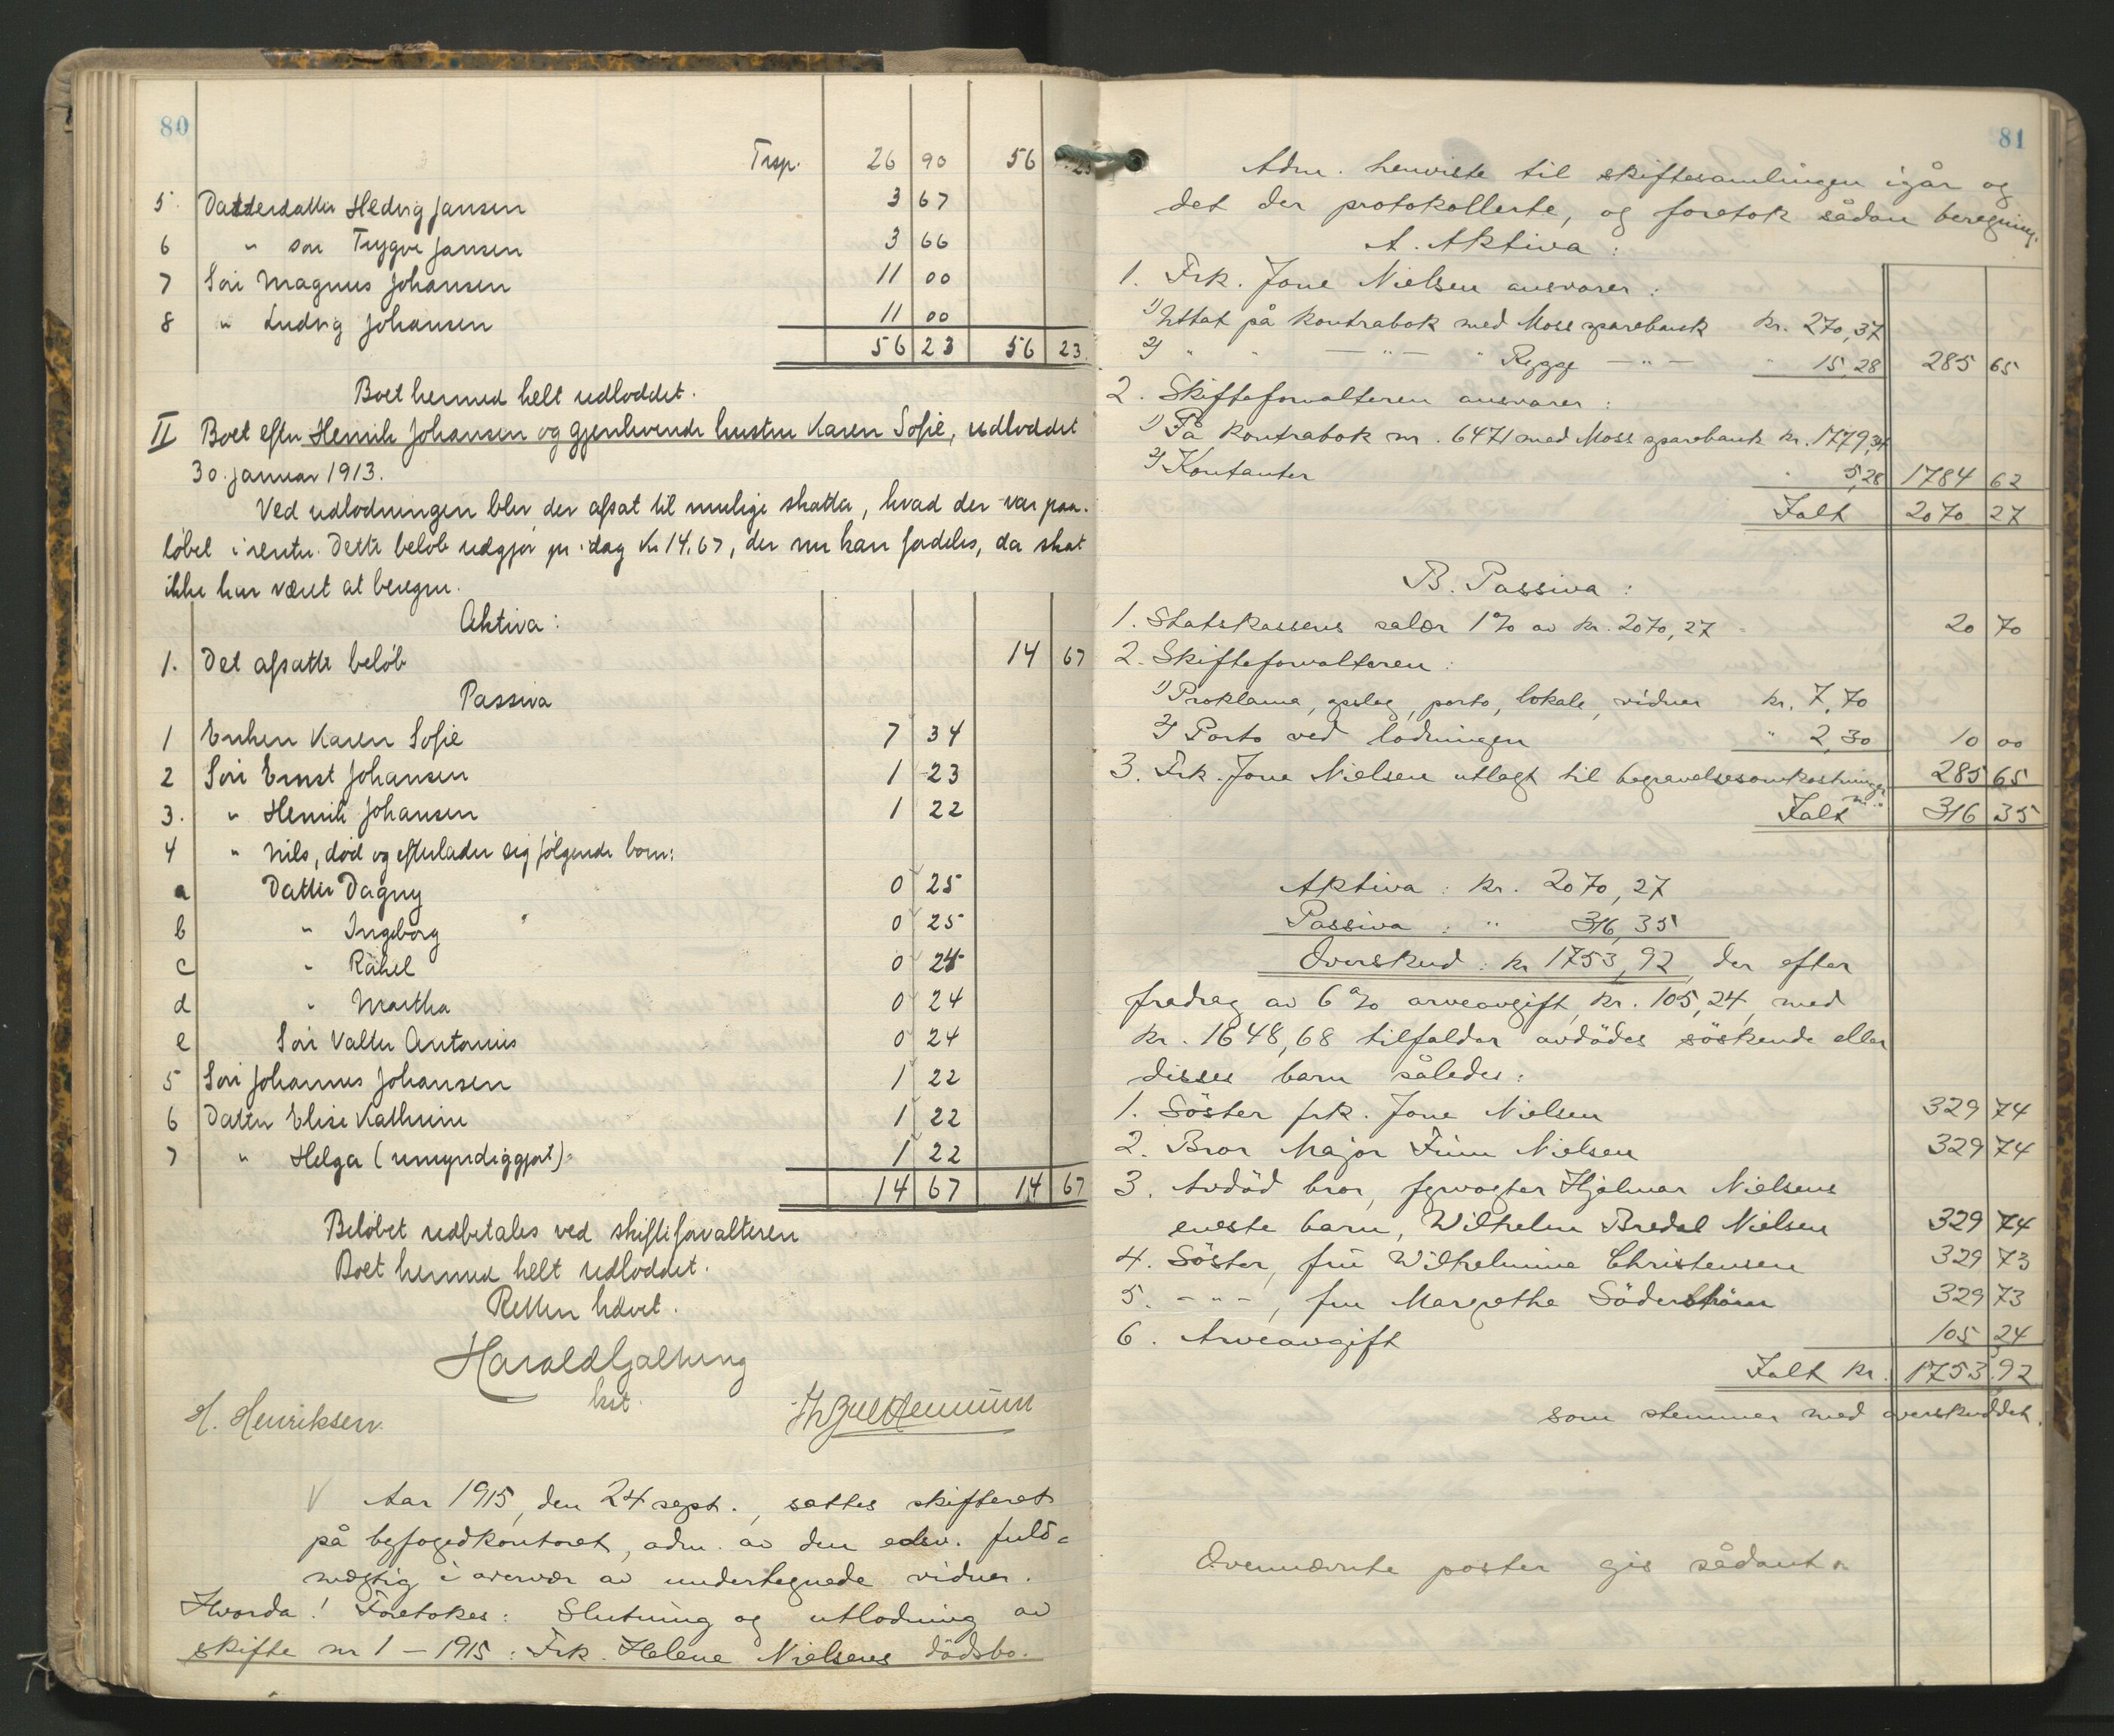 80
Trsp. 26 90 56 23
5 Datterdatter Hedvig Jansen 3 67
6 " søn Trygve Jansen 3 66
7 Søn Magnus Johansen 11 00
8 " Ludvig Johansen 11 00
56 23 56 23.
Boet hermed helt udloddet.
II Boet efter Henrik Johansen og gjenlevende hustru Karen Sofie, udloddet
30. januar 1913.
Ved udlodningen blev der afsat til mulige skatter, hvad der var paa-
løbet i renter. Dette beløb udgjør pr. idag Kr 14.67, der nu kan fordeles, da skat
ikke har været at beregne.
Aktiva:
1. Det afsatte beløb 14 67
Passiva
1 Enken Karen Sofie 7 34
2 Søn Ernst Johansen 1 23
3. " Henrik Johansen 1 22
4 " Nils, død og efterlader sig følgende børn:
a Datter Dagny 0 25
b " Ingeborg 0 25
c " Rakel 0 24
d " Martha 0 24
e Søn Valter Antonius 0 24
5 Søn Johannes Johansen 1 22
6 Datter Elise Kathrine 1 22
7 " Helga (umyndiggjort) 1 22
14 67 14 67
Beløbet udbetales ved skifteforvalteren
Boet hermed helt udloddet.
Retten hævet.
Harald Galtung
kst.
H. Henriksen.
V Aar 1915, den 24 sept., sattes skifteret
på byfogedkontoret, adm. av den edsv. fuld-
mægtig i overvær av undertegnede vidner.
Hvorda! Foretokes: Slutning og utlodning av
skifte nr 1 – 1915: Frk. Helene Nielsens dödsbo.
81
Adm. henviste til skiftesamlingen igår og
det der protokollerte, og foretok sådan beregning.
A. Aktiva:
1. Frk. Jone Nielsen ansvarer:
1) Uttat på kontrabok med Moss sparebank kr. 270,37
2) " " — " — " Rygge — " — " 15,28 285 65
2. Skifteforvalteren ansvarer:
1) På kontrabok nr. 6471 med Moss sparebank kr. 1779,34
2) Kontanter " 5,28 1784 62
Ialt 2070 27
B. Passiva:
1. Statskassens salær 1% av kr. 2070,27 20 70
2. Skifteforvalteren:
1) Proklama, opslag, porto, lokale, vidner kr. 7,70
2) Porto ved lodningen " 2,30 10 00
3. Frk. Jone Nielsen utlagt til begravelsesomkostninger m.v. 285 65
Ialt 316 35
Aktiva: kr. 2070,27
Passiva: " 316,35
Overskud: kr 1753,92, der efter
fradrag av 6% arveavgift, kr. 105,24, med
kr. 1648,68 tilfalder avdödes söskende eller
disses barn således:
1. Söster frk. Jone Nielsen 329 74
2. Bror Major Finn Nielsen 329 74
3. Avdöd bror, fyrvogter Hjalmar Nielsens
eneste barn, Wilhelm Bredal Nielsen 329 74
4. Söster, fru Wilhelmine Christensen 329 73
5. – " –, fru Margrethe Söderström 329 73
6. Arveavgift 105 24
Ialt kr. 1753 92
som stemmer med overskuddet.
Ovennævnte poster gis sådant